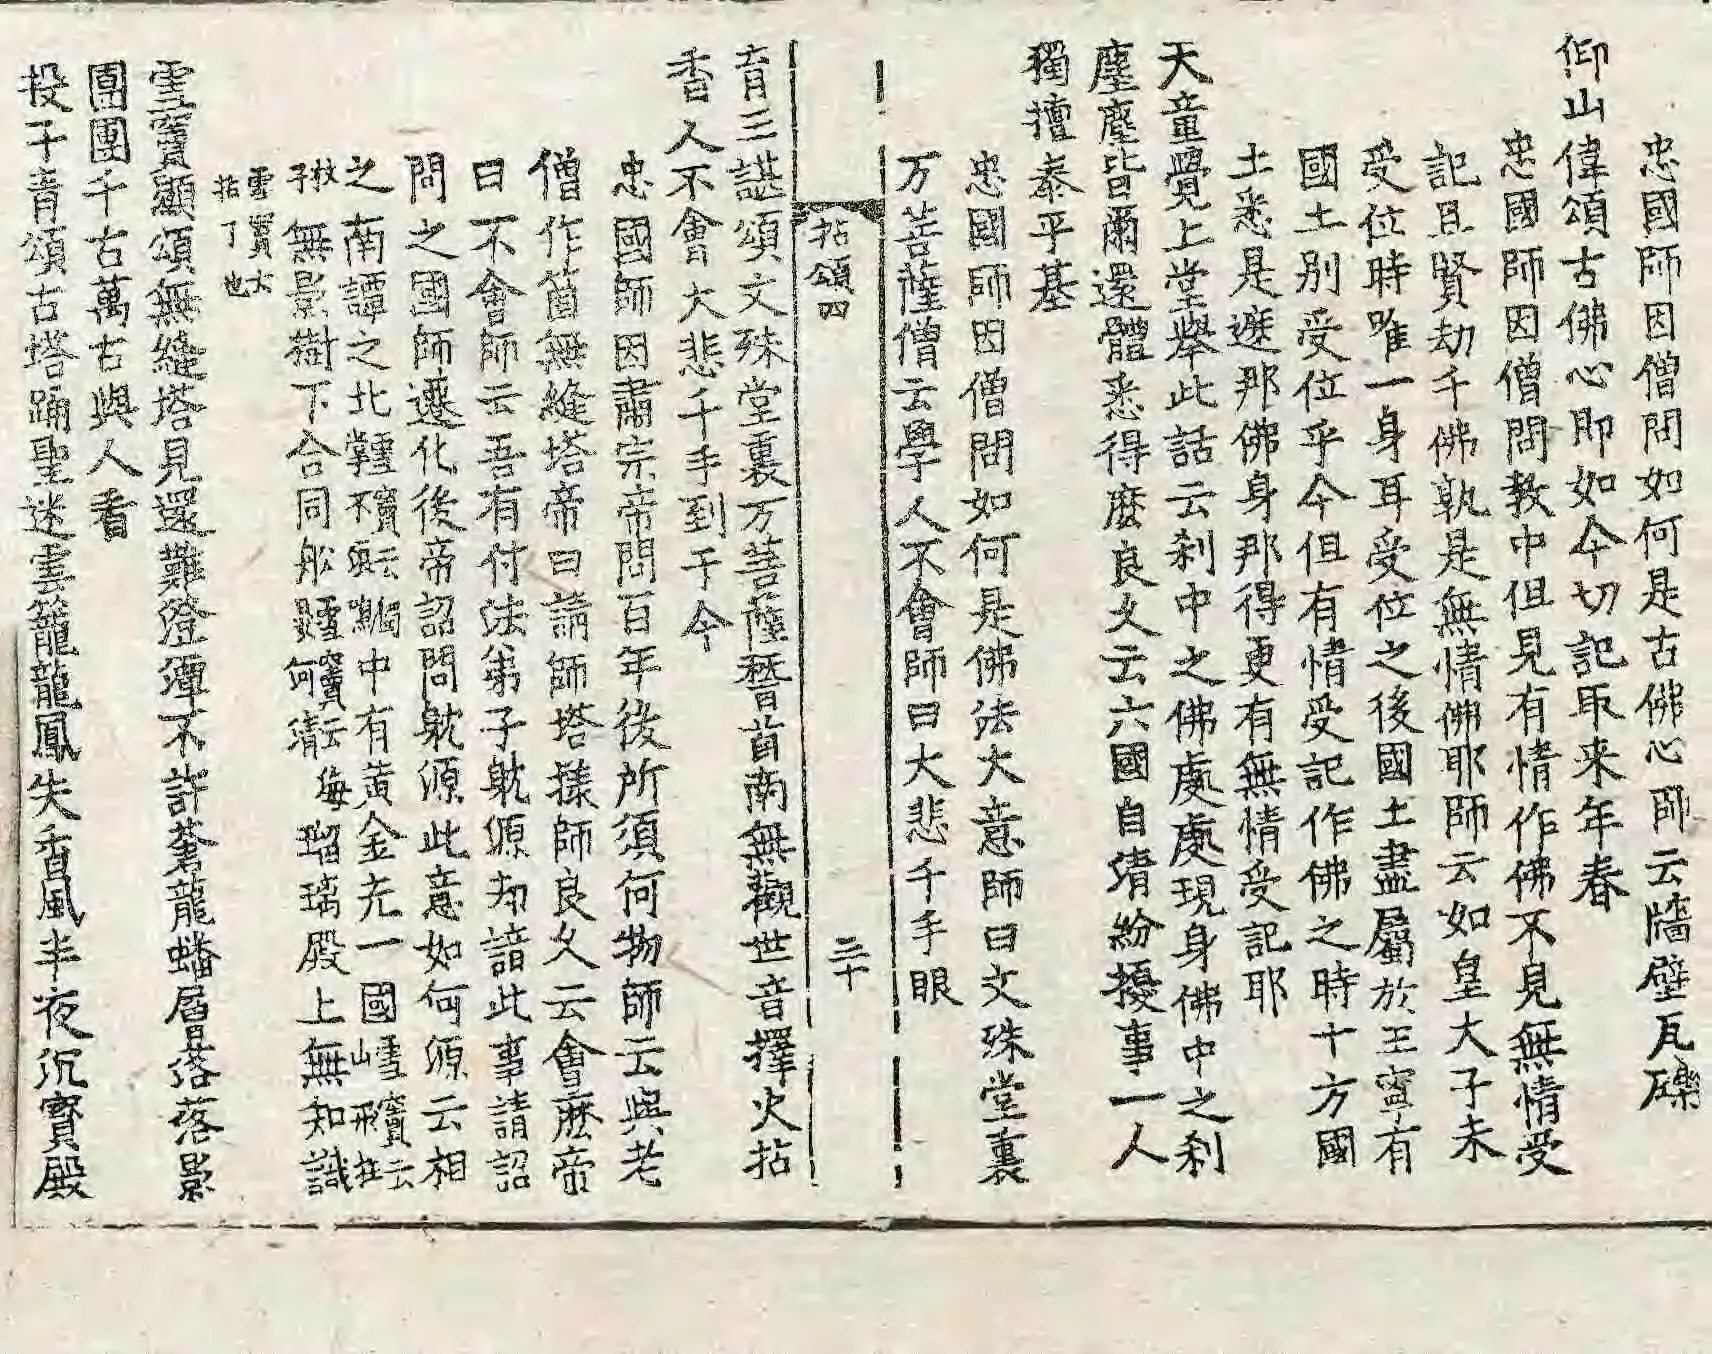 忠國師因僧問如何是古佛心師云牆壁瓦礫
仰山偉頌古佛心即如今切記取来年春
忠國師因僧問教中但見有情作佛不見無情受
記且賢劫千佛孰是無情佛耶師云如皇大子未
受位時唯一身耳受位之後國土盡屬於王寧有
國土別受位乎今但有情受記作佛之時十方國
土悉是遮那佛身那得更有無情受記耶
天童覺上堂舉此話云刹中之佛處處現身佛中之刹
塵塵皆爾還體悉得麽良久云六國自清紛擾事一人
獨擅泰平基
忠國師因僧問如何是佛法大意師曰文殊堂裏
万菩薩僧云學人不會師曰大悲千手眼
拈頌四
三十
育王諶頌文殊堂裏万菩薩瞀首南無觀世音擇火拈
香人不會大悲千手到于今
忠國師因肅宗帝問百年後所須何物師云與老
僧作箇無縫塔帝曰請師塔㨾師良久云會麽帝
曰不會師云吾有付法弟子躭源却諳此事請詔
問之國師遷化後帝詔問躭源此意如何源云相
之南譚之北雪竇云獨掌不浪鳴中有黄金充一國雪竇云山形拄
杖子無影樹下合同舩雪竇云海晏河清瑠璃殿上無知識
雪竇云拈了也
雪竇顯頌無縫塔見還難澄潭不許蒼龍蟠層落落影
團團千古萬古與人看
投子青頌古塔踊聖迷雲籠龍鳳失香風半夜沉寳殿